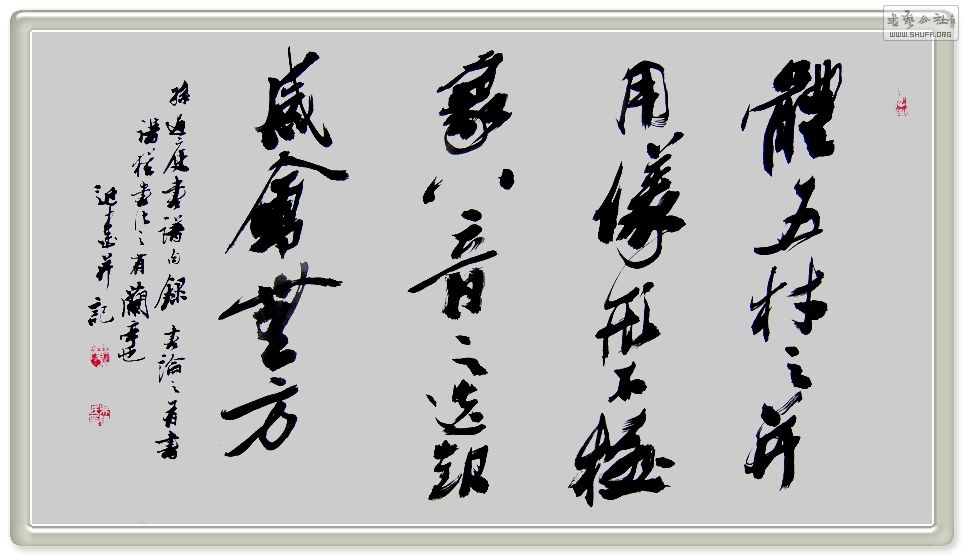 體五材之并
用儀形不極
象八音之迭起
感會無方
孫過庭書譜句錄 書論之有書
譜猶書法之有蘭亭也
并記
书艺公社
WWW.SHUFA.ORG